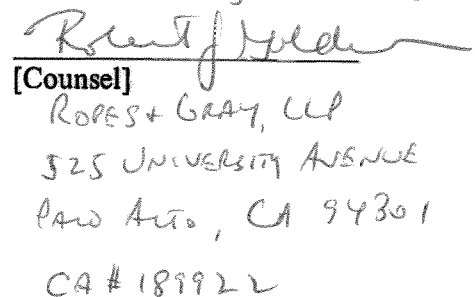 Robert J
[Counsel]
ROPES & GRAY, LLP
525 UNIVERSITY AVENUE
PALO ALTO, CA 94301
CA # 189922